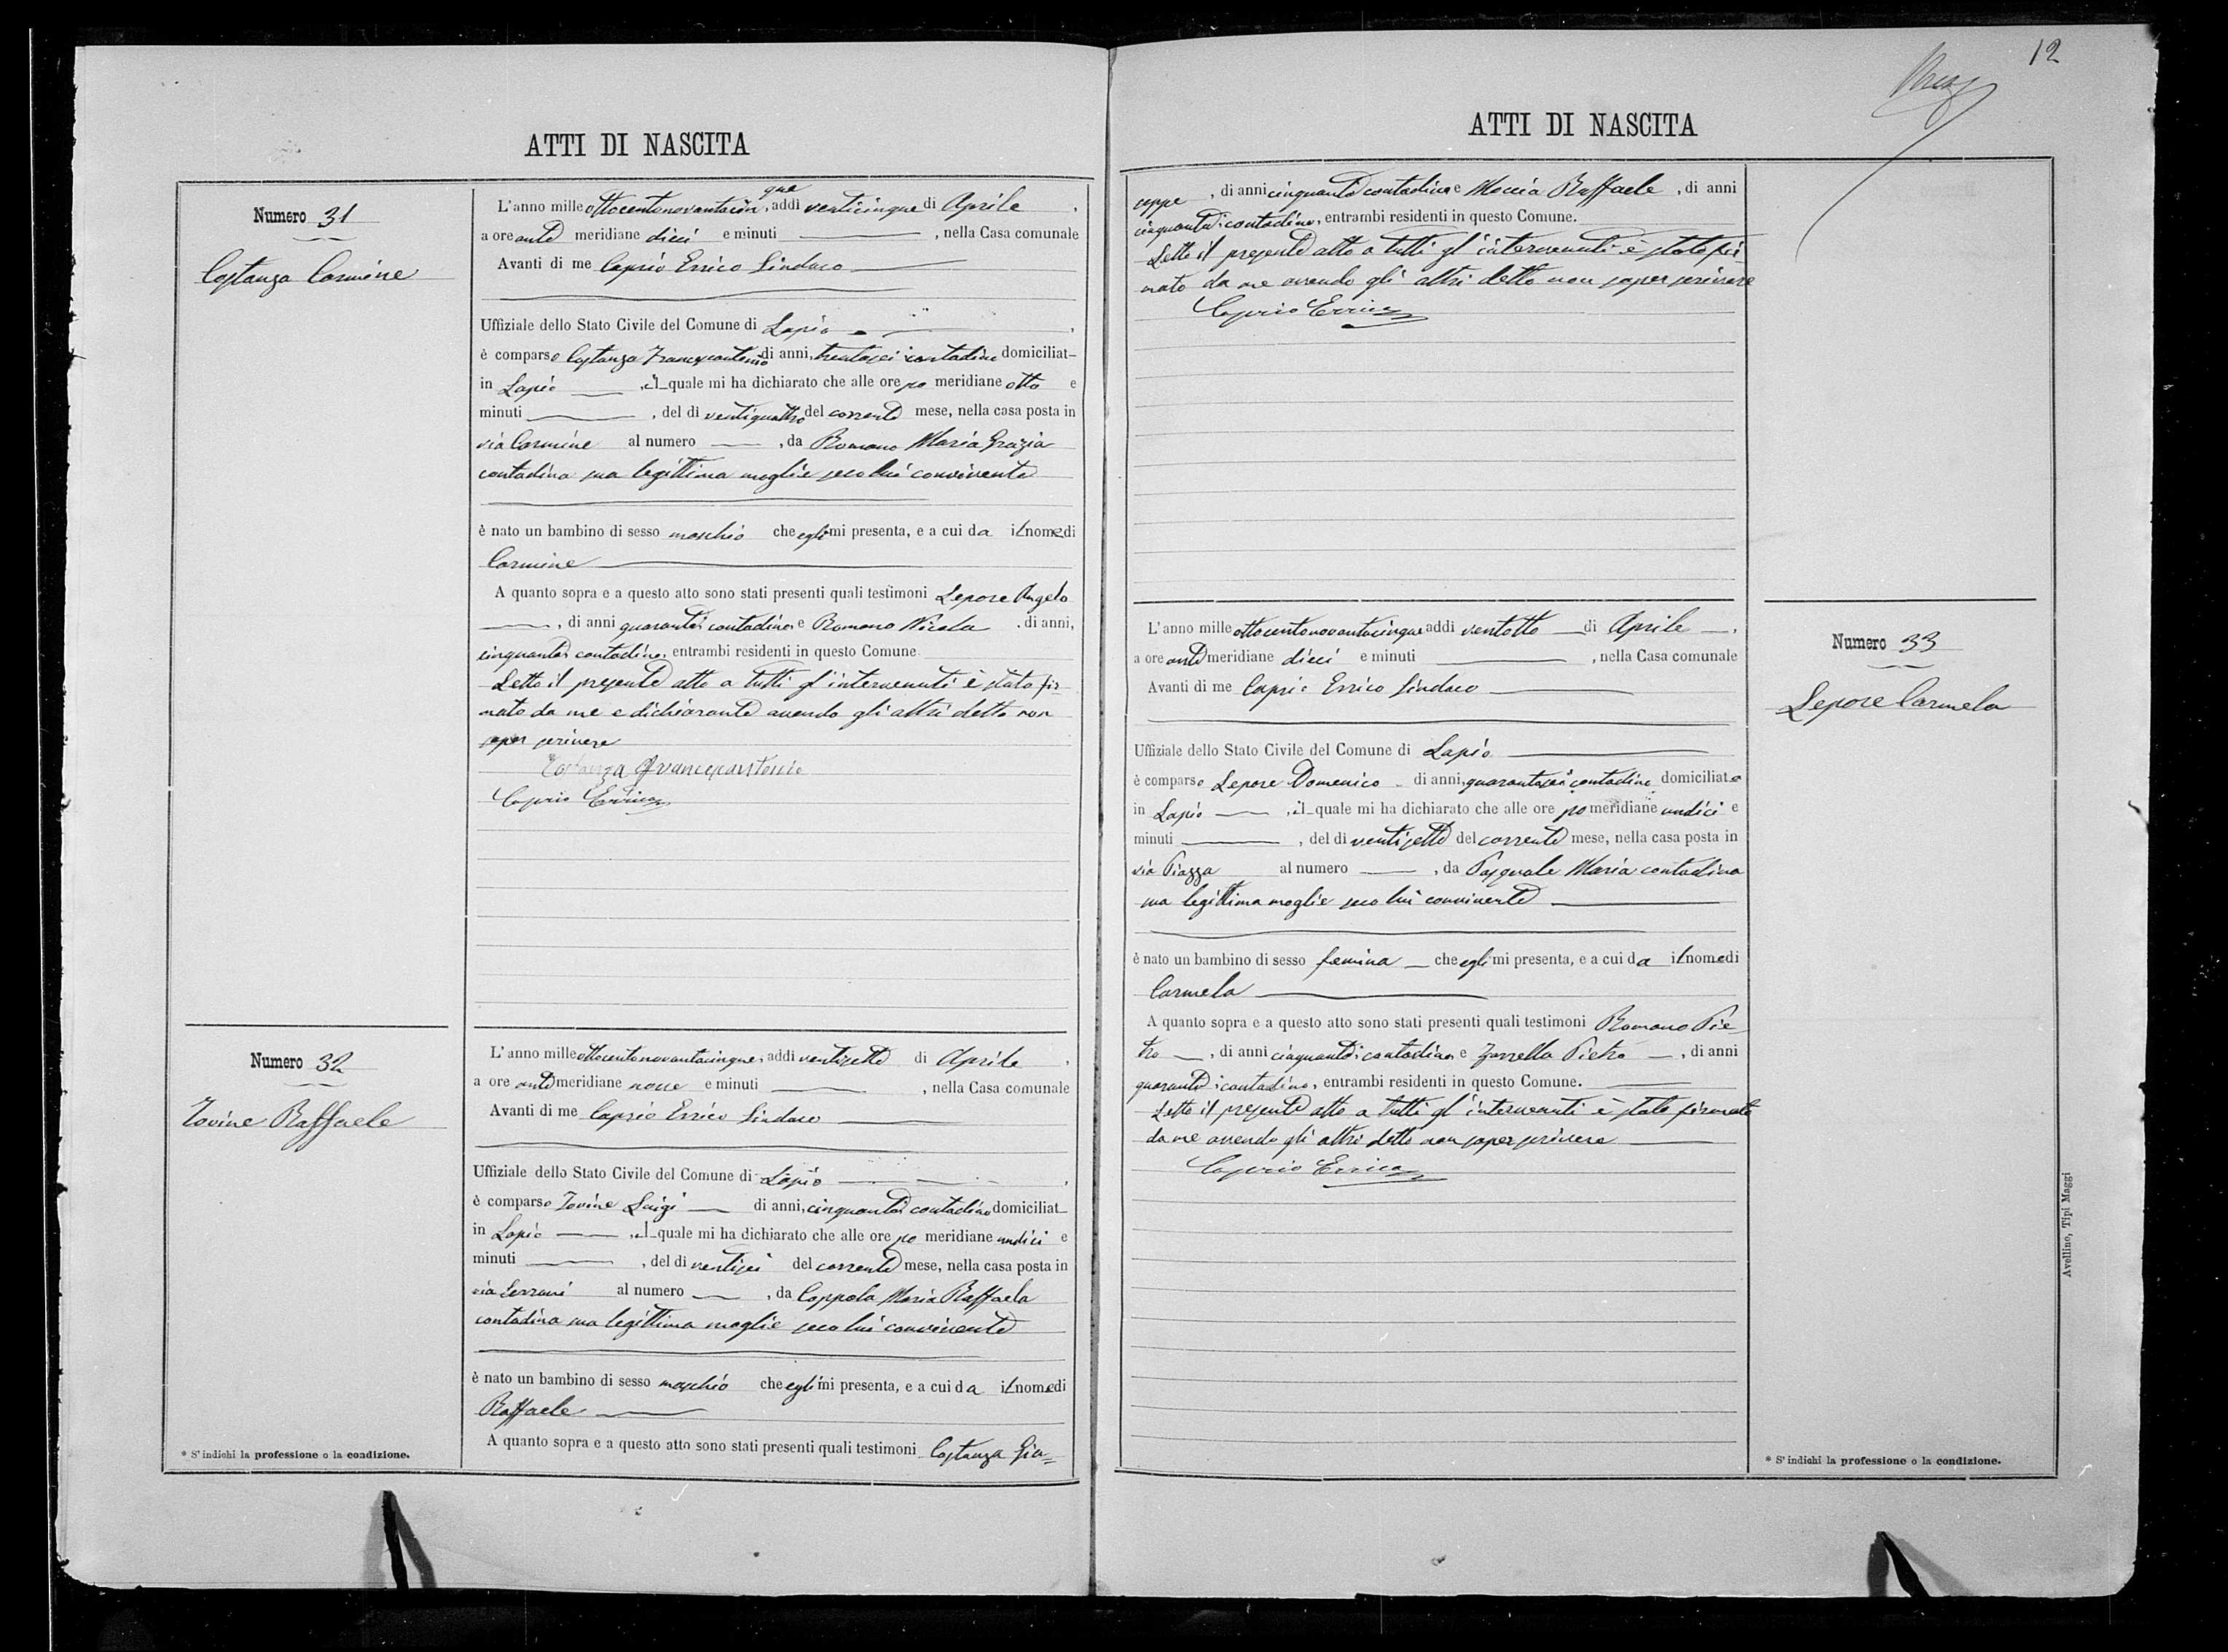 ATTI DI NASCITA
Numero 31
Costanza Carmine
L'anno mille ottocentonovantacinque, addì venticinque di Aprile,
a ore ante meridiane dieci e minuti, nella Casa comunale
Avanti di me Caprio Errico Sindaco
Uffiziale dello Stato Civile del Comune di Lapio,
è comparso Costanza Francescantonio di anni, trentasei contadino domiciliat
in Lapio, il quale mi ha dichiarato che alle ore po meridiane otto e
minuti, del dì ventiquattro del corrente mese, nella casa posta in
via Carmine al numero, da Romano Maria Grazia
contadina sua legittima moglie seco lui convivente
è nato un bambino di sesso maschio che egli mi presenta, e a cui da il nome di
Carmine
A quanto sopra e a questo atto sono stati presenti quali testimoni Lepore Angelo
, di anni quaranta, contadino e Romano Nicola, di anni,
cinquanta, contadino, entrambi residenti in questo Comune.
Letto il presente atto a tutti gl'intervenuti è stato fir-
mato da me e dichiarante avendo gli altri detto non
saper scrivere
Costanza Francescantonio
Caprio Errico
Numero 32
Iovine Raffaele
L'anno mille ottocentonovantacinque, addì ventisette di Aprile,
a ore ante meridiane nove e minuti, nella Casa comunale
Avanti di me Caprio Errico Sindaco
Uffiziale dello Stato Civile del Comune di Lapio,
è comparso Iovine Luigi di anni, cinquanta, contadino domiciliat
in Lapio, il quale mi ha dichiarato che alle ore po meridiane undici e
minuti, del dì ventisei del corrente mese, nella casa posta in
via al numero, da Coppola Maria Raffaela
contadina sua legittima moglie seco lui convivente
è nato un bambino di sesso maschio che egli mi presenta, e a cui da il nome di
Raffaele
A quanto sopra e a questo atto sono stati presenti quali testimoni Costanza Giu=
* S'indichi la professione o la condizione.
12
ATTI DI NASCITA
seppe, di anni cinquanta contadino e Moccia Raffaele, di anni
cinquanta, contadino, entrambi residenti in questo Comune.
Letto il presente atto a tutti gl'intervenuti è stato fir-
mato da me avendo gli altri detto non saper scrivere
Caprio Errico
Numero 33
Lepore Carmela
L'anno mille ottocentonovantacinque addì ventotto di Aprile,
a ore ante meridiane dieci e minuti, nella Casa comunale
Avanti di me Caprio Errico Sindaco
Uffiziale dello Stato Civile del Comune di Lapio
è comparso Lepore Domenico di anni, quarantasei contadino domiciliato
in Lapio, il quale mi ha dichiarato che alle ore po meridiane undici e
minuti, del dì ventisette del corrente mese, nella casa posta in
via Piazza al numero, da Pasquale Maria contadina
sua legittima moglie seco lui convivente
è nato un bambino di sesso femina che egli mi presenta, e a cui da il nome di
Carmela
A quanto sopra e a questo atto sono stati presenti quali testimoni Romano Pie-
tro, di anni cinquanta, contadino e Zarrella Pietro, di anni
quaranta, contadino, entrambi residenti in questo Comune.
Letto il presente atto a tutti gl'intervenuti è stato firmato
da me avendo gli altri detto non saper scrivere
Caprio Errico
* S'indichi la professione o la condizione.
Avellino, Tipi Maggi